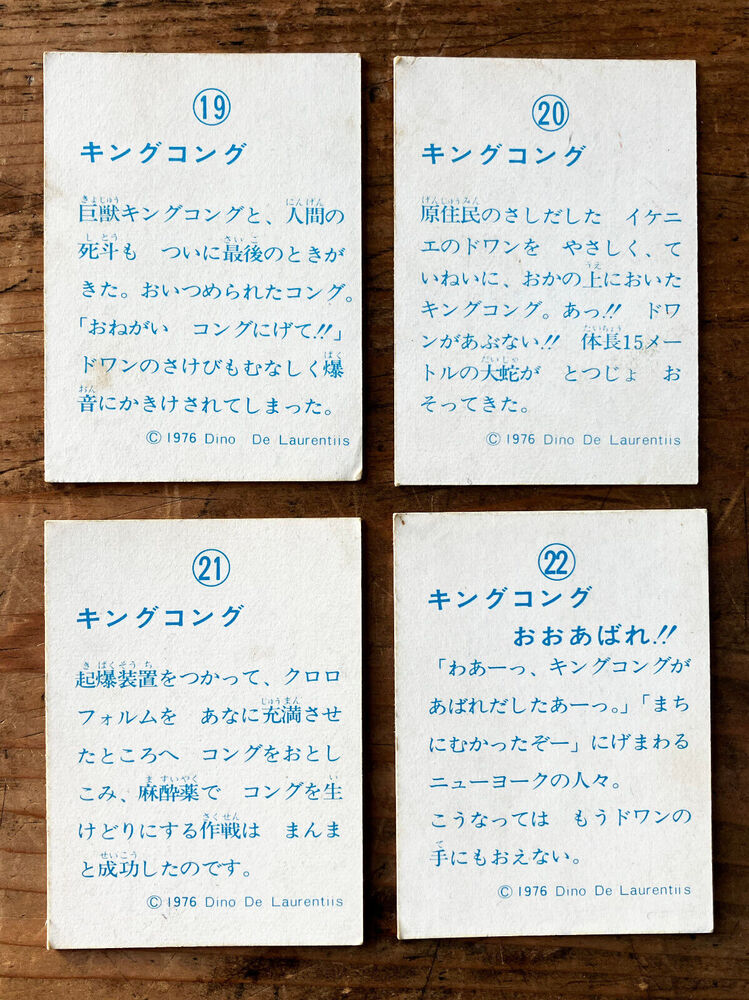 19
キングコング
巨獣キングコングと、人間の
死斗も　ついに最後のときが
きた。おいつめられたコング。
「おねがい　コングにげて!!」
ドワンのさけびもむなしく爆
音にかきけされてしまった。
© 1976 Dino De Laurentiis
20
キングコング
原住民のさしだした　イケニ
エのドワンを　やさしく、て
いねいに、おかの上においた
キングコング。あっ!!　ドワ
ンがあぶない!!　体長15メー
トルの大蛇が　とつじょ　お
そってきた。
© 1976 Dino De Laurentiis
21
キングコング
起爆装置をつかって、クロロ
フォルムを　あなに充満させ
たところへ　コングをおとし
こみ、麻酔薬で　コングを生
けどりにする作戦は　まんま
と成功したのです。
© 1976 Dino De Laurentiis
22
キングコング
おおあばれ!!
「わあーっ、キングコングが
あばれだしたあーっ。」「まち
にむかったぞー」にげまわる
ニューヨークの人々。
こうなっては　もうドワンの
手にもおえない。
© 1976 Dino De Laurentiis